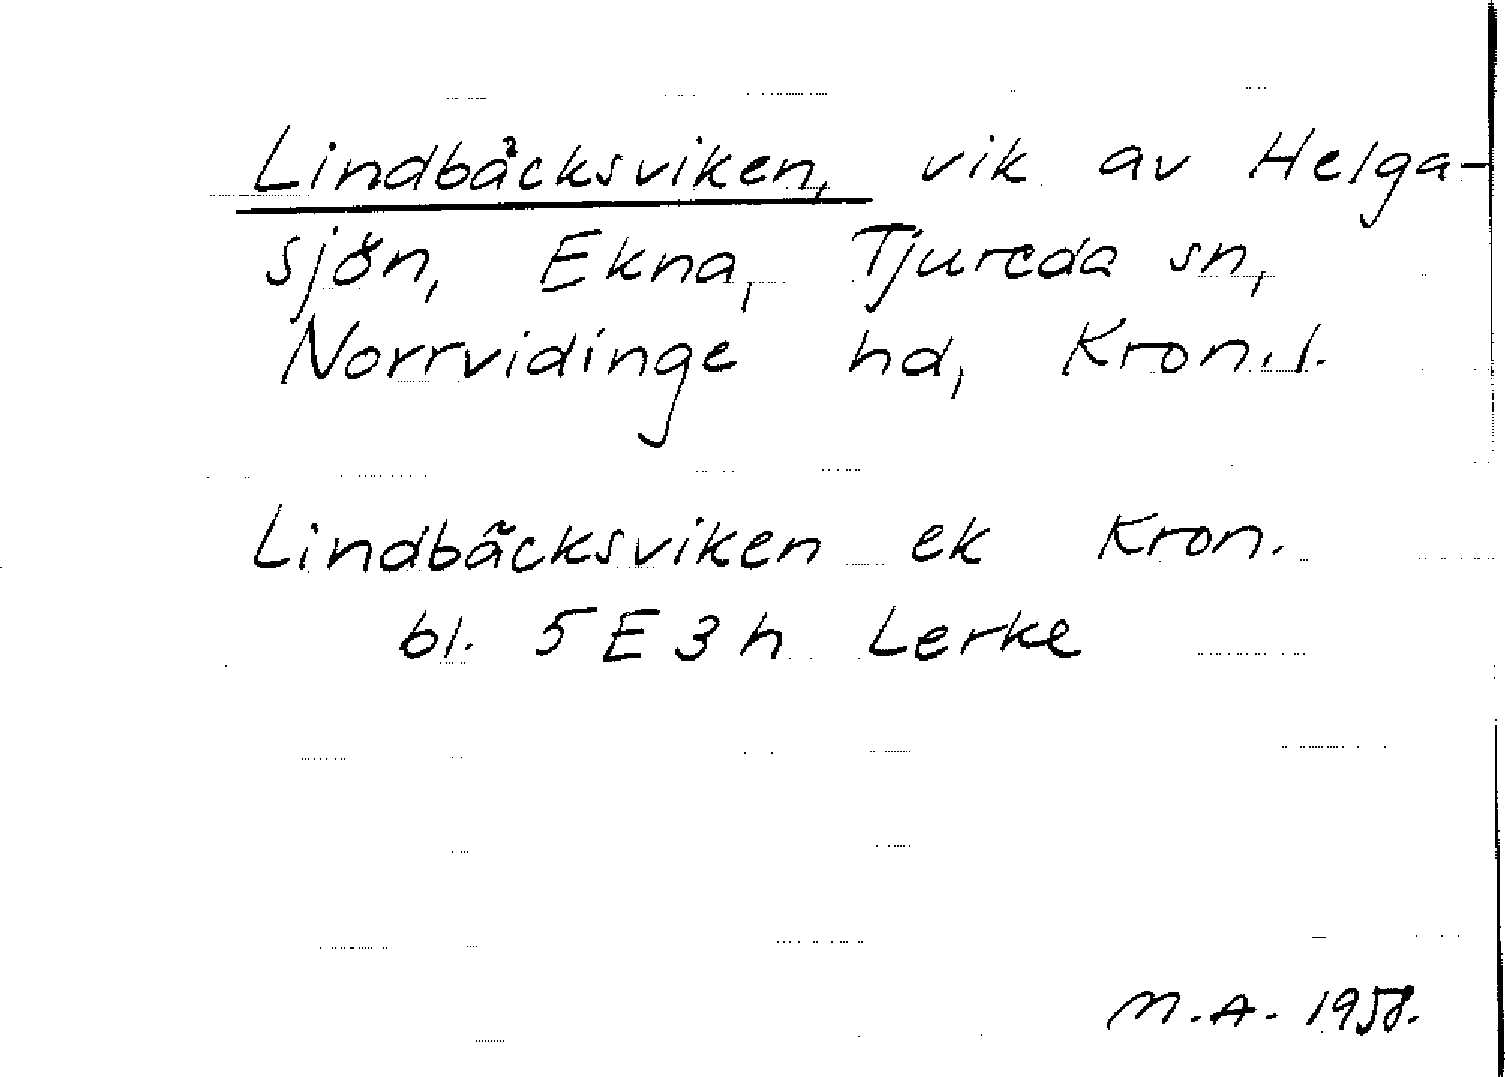 Lindbäcksviken, vik av Helga-
sjön, Ekna, Tjureda sn,
Norrvidinge hd, Kron.l.
Lindbäcksviken ek Kron.
bl. 5E3h Lerke
M.A. 1958.